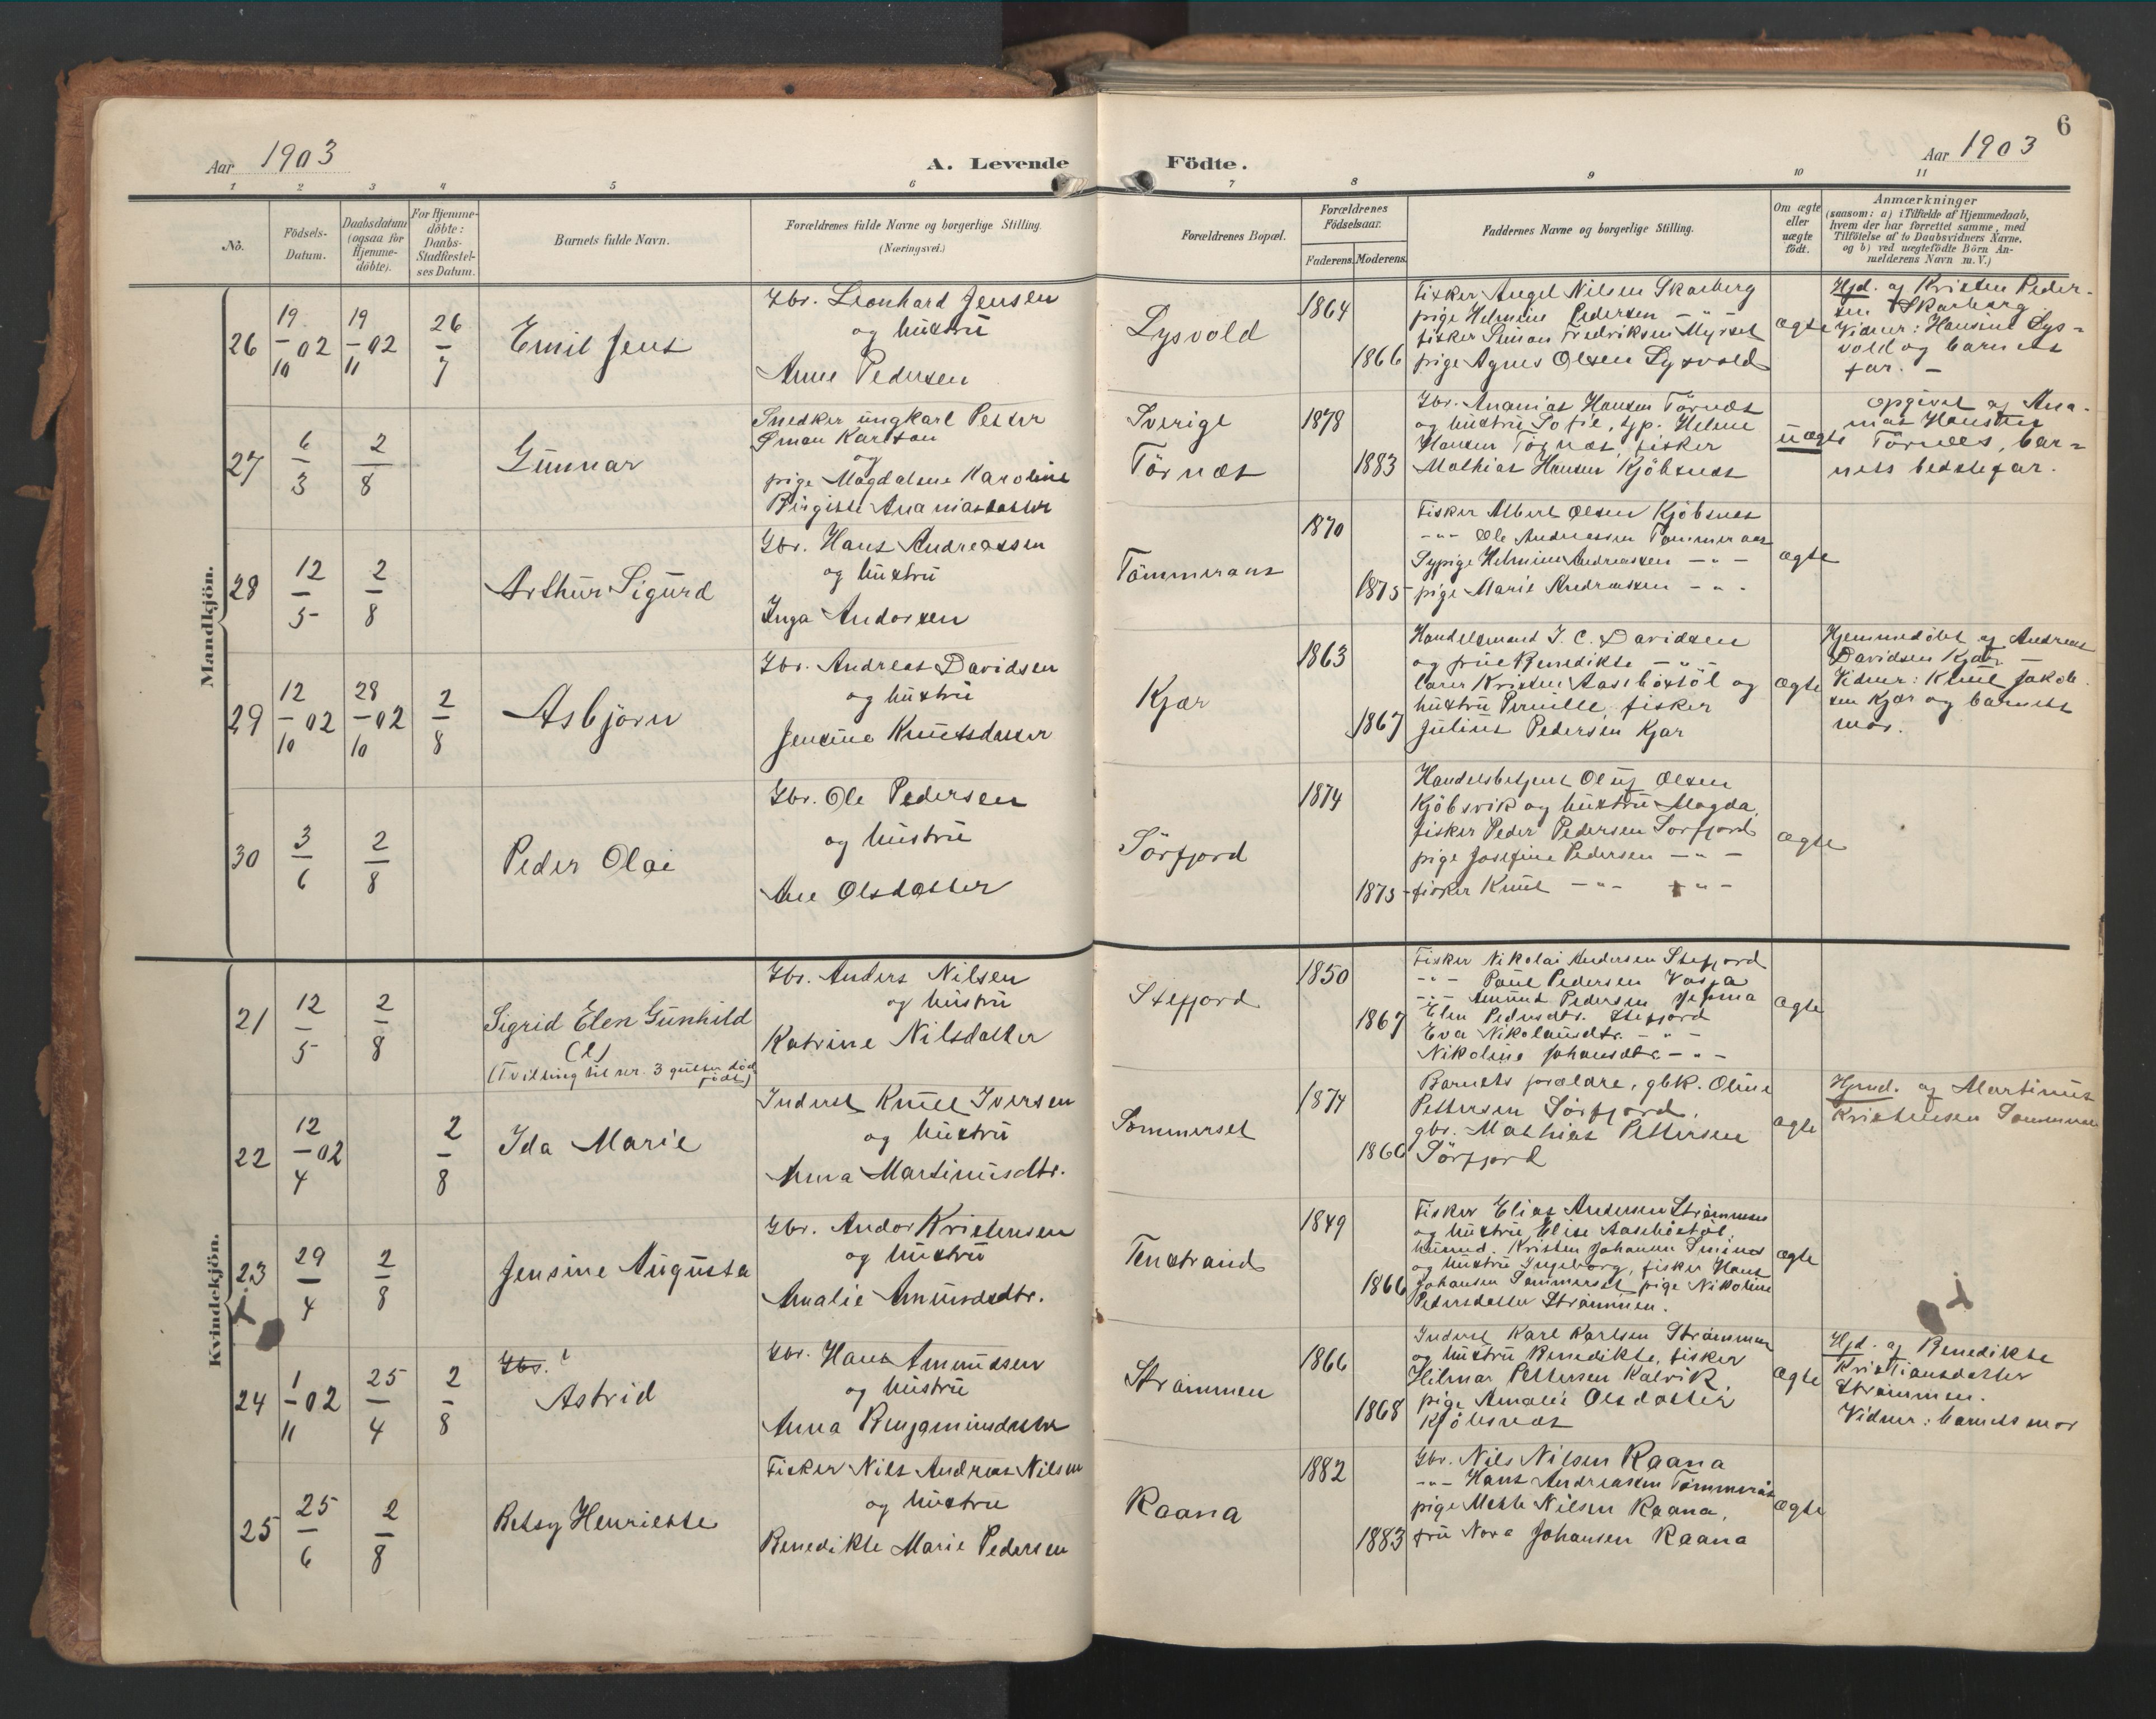 6
Aar 1903
A. Levende
Födte.
Aar 1903
1 2 3 4 5 6 7 8 9 10 11
No.
Födsels-
Datum.
Daabsdatum
(ogsaa for
Hjemme-
döbte).
For Hjemme-
döbte:
Daabs-
Stadfæstel-
ses Datum.
Barnets fulde Navn.
Forældrenes fulde Navne og borgerlige Stilling.
(Næringsvei.)
Forældrenes Bopæl.
Forældrenes
Födselsaar.
Faderens. Moderens.
Faddernes Navne og borgerlige Stilling.
Om ægte
eller
uægte
født.
Anmærkninger
(saasom: a) i Tilfælde af Hjemmedaab,
hvem der har forrettet samme, med
Tilföielse af to Daabsvidners Navne.
og b) ved uægtefødte Börn An-
melderens Navn m. V.)
Mandkjön.
26
19/10 -02
19/11 -02
26/7
Emil Jens
Gbr. Leonhard Jensen
og hustru
Anne Pedersen
Lysvold
1864
1866
Fisker Angel Nilsen Skarberg
pige Helmine Pedersen - " -
fisker Simon Fredriksen Myrset
pige Agnes Olsen Lysvold
ægte
Hjd. af Kristen Peder-
sen Skarberg
Vidner: Hansine Lys-
vold og barnets
far. -
27
6/3
2/8
Gunnar
Snedker ungkarl Petter
Øman Karlson
og
pige Magdalene Karoline
Birgitte Ananiasdatter
Sverige
Törnæs
1878
1883
Gbr. Ananias Hansen Törnæs
og hustru Sofie, syp. Helene
Hansen Törnæs, fisker
Mathias Hansen Kjöbsnæs
uægte
opgivet af Ana-
nias Hansen
Törnæs, bar-
nets bedstefar.
28
12/5
2/8
Arthur Sigurd
Gbr. Hans Andreassen
og hustru
Inga Andorsen
Tömmeraas
1870
1875
Fisker Albert Olsen Kjöbsnes
- " - Ole Andreassen Tömmeraas
Sypige Helmine Andreassen - " -
pige Marie Andreassen - " -
ægte
29
12/10 -02
28/10 -02
2/8
Asbjørn
Gbr. Andreas Davidsen
og hustru
Jensine Knutsdatter
Kjær
1863
1867
Handelsmand J. C. Davidsen
og frue Benedikte - " -
lærer Kristen Aasebøstöl og
hustru Pernille, fisker
Julius Pedersen Kjær
ægte
Hjemmedöbt af Andreas
Davidsen Kjær. -
Vidner: Knut Jakob-
sen Kjær og barnets
mor.
30
3/6
2/8
Peder Olai
Gbr. Ole Pedersen
og hustru
Ane Olsdatter
Sörfjord
1874
1875
Handelsbetjent Oluf Olsen
Kjöbsvik og hustru Magda,
fisker Peder Pedersen Sörfjord
pige Josefine Pedersen - " -
fisker Knut - " - - " -
ægte
Kvindekjön.
21
12/5
2/8
Sigrid Elen Gunhild
(l)
(Tvilling til nr. 3 gutter død
født)
Gbr. Anders Nilsen
og hustru
Katrine Nilsdatter
Stefjord
1850
1867
Fisker Nikolai Andersen Stefjord
- " - Paul Pedersen Vasja
- " - Amund Pedersen
Elen Pedersdtr. Stefjord
Eva Nikolaisdtr. - " -
Nikoline Johansdtr. - " -
ægte
22
12/4 -02
2/8
Ida Marie
Inderst Knut Iversen
og hustru
Anna Martinusdtr.
Sommerset
1874
1860
Barnets forældre, gbk. Oline
Pettersen Sörfjord,
gbr. Mathias Pettersen
Sörfjord
ægte
Hjmd. af Martinus
Kristensen Sommerset
23
29/4
2/8
Jensine Augusta
Gbr. Andor Kristensen
og hustru
Amalie Amundsdtr.
Tenstrand
1849
1866
Fisker Elias Andersen Strömmen
og hustru Elise Aasebøstöl,
husmd. Kristen Johansen Smines
og hustru Ingeborg, fisker Hans
Johansen Sommerset, pige Nikoline
Pedersdatter Strömmen.
ægte
24
1/11 -02
25/4
2/8
Gbr.
Astrid
Gbr. Hans Amundsen
og hustru
Anna Benjaminsdatter
Strömmen
1866
1868
Inderst Karl Karlsen Strömmen
og hustru Benedikte, fisker
Hilmar Pettersen Kalvik,
pige Amalie Olsdatter,
Kjöbsnæs
ægte
Hjd. af Benedikte
Kristiansdatter
Strömmen.
Vidner: barnets mor
25
25/6
2/8
Betsy Henriette
Fisker Nils Andreas Nilsen
og hustru
Benedikte Marie Pedersen
Raana
1882
1883
Gbr. Nils Nilsen Raana
- " - Hans Andreassen Tömmerås
pige Mette Nilsen Raana,
fru Nora Johansen Raana
ægte